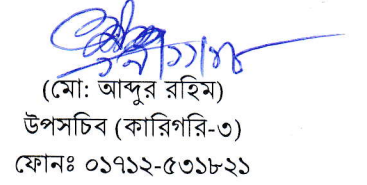 (মো: আব্দুর রহিম)
উপসচিব (কারিগরি-৩)
ফোনঃ ০১৭১২-৫৩১৮২১